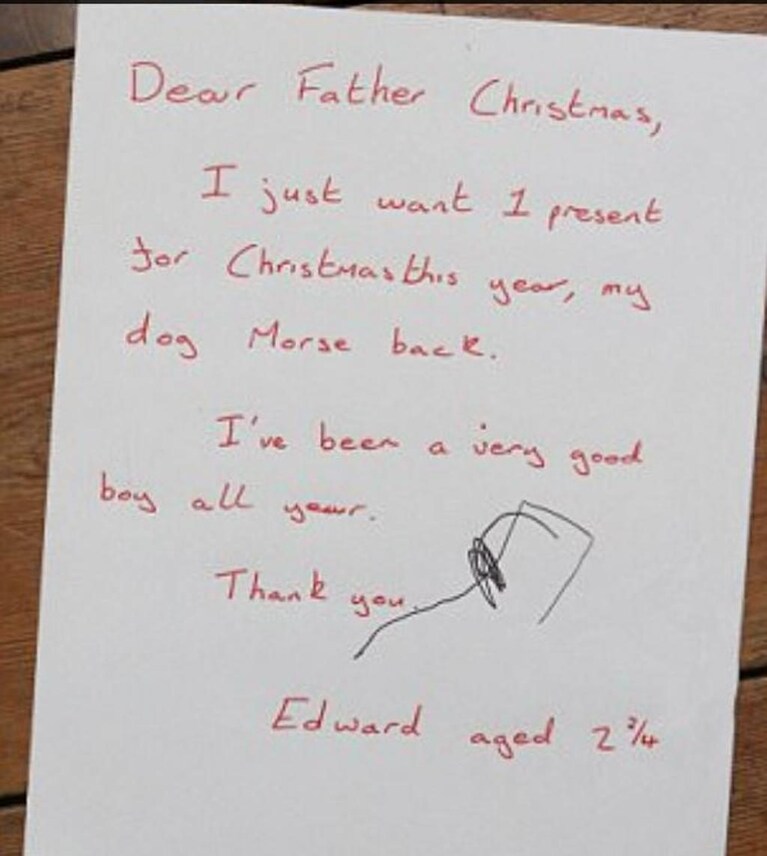 Dear Father Christmas,
I just want 1 present
for Christmas this year, my
dog Morse back.
I've been a very good
boy all year.
Thank you.
Edward aged 2 3/4